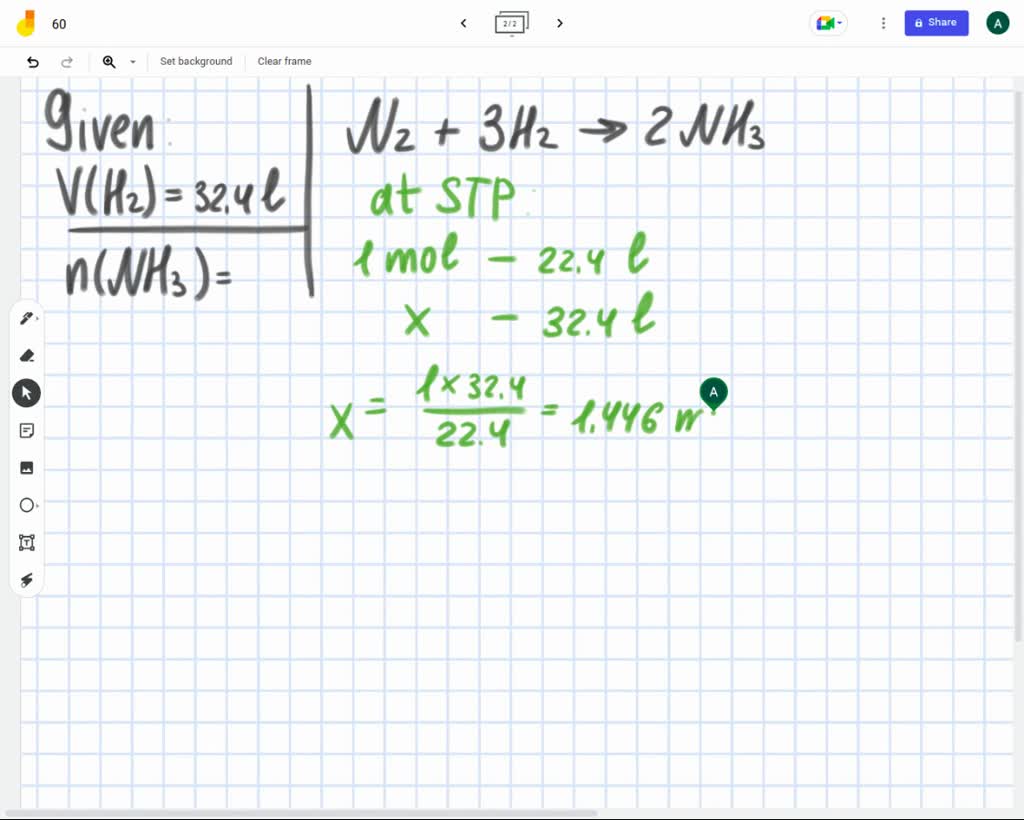 60
2/2
Share
A
Set background
Clear frame
Given:
V(H₂) = 32.4 l
n(NH₃) =
N₂ + 3H₂ → 2NH₃
at STP:
1 mol - 22.4 l
x - 32.4 l
x = 1 x 32.4 / 22.4 = 1.446 m
A